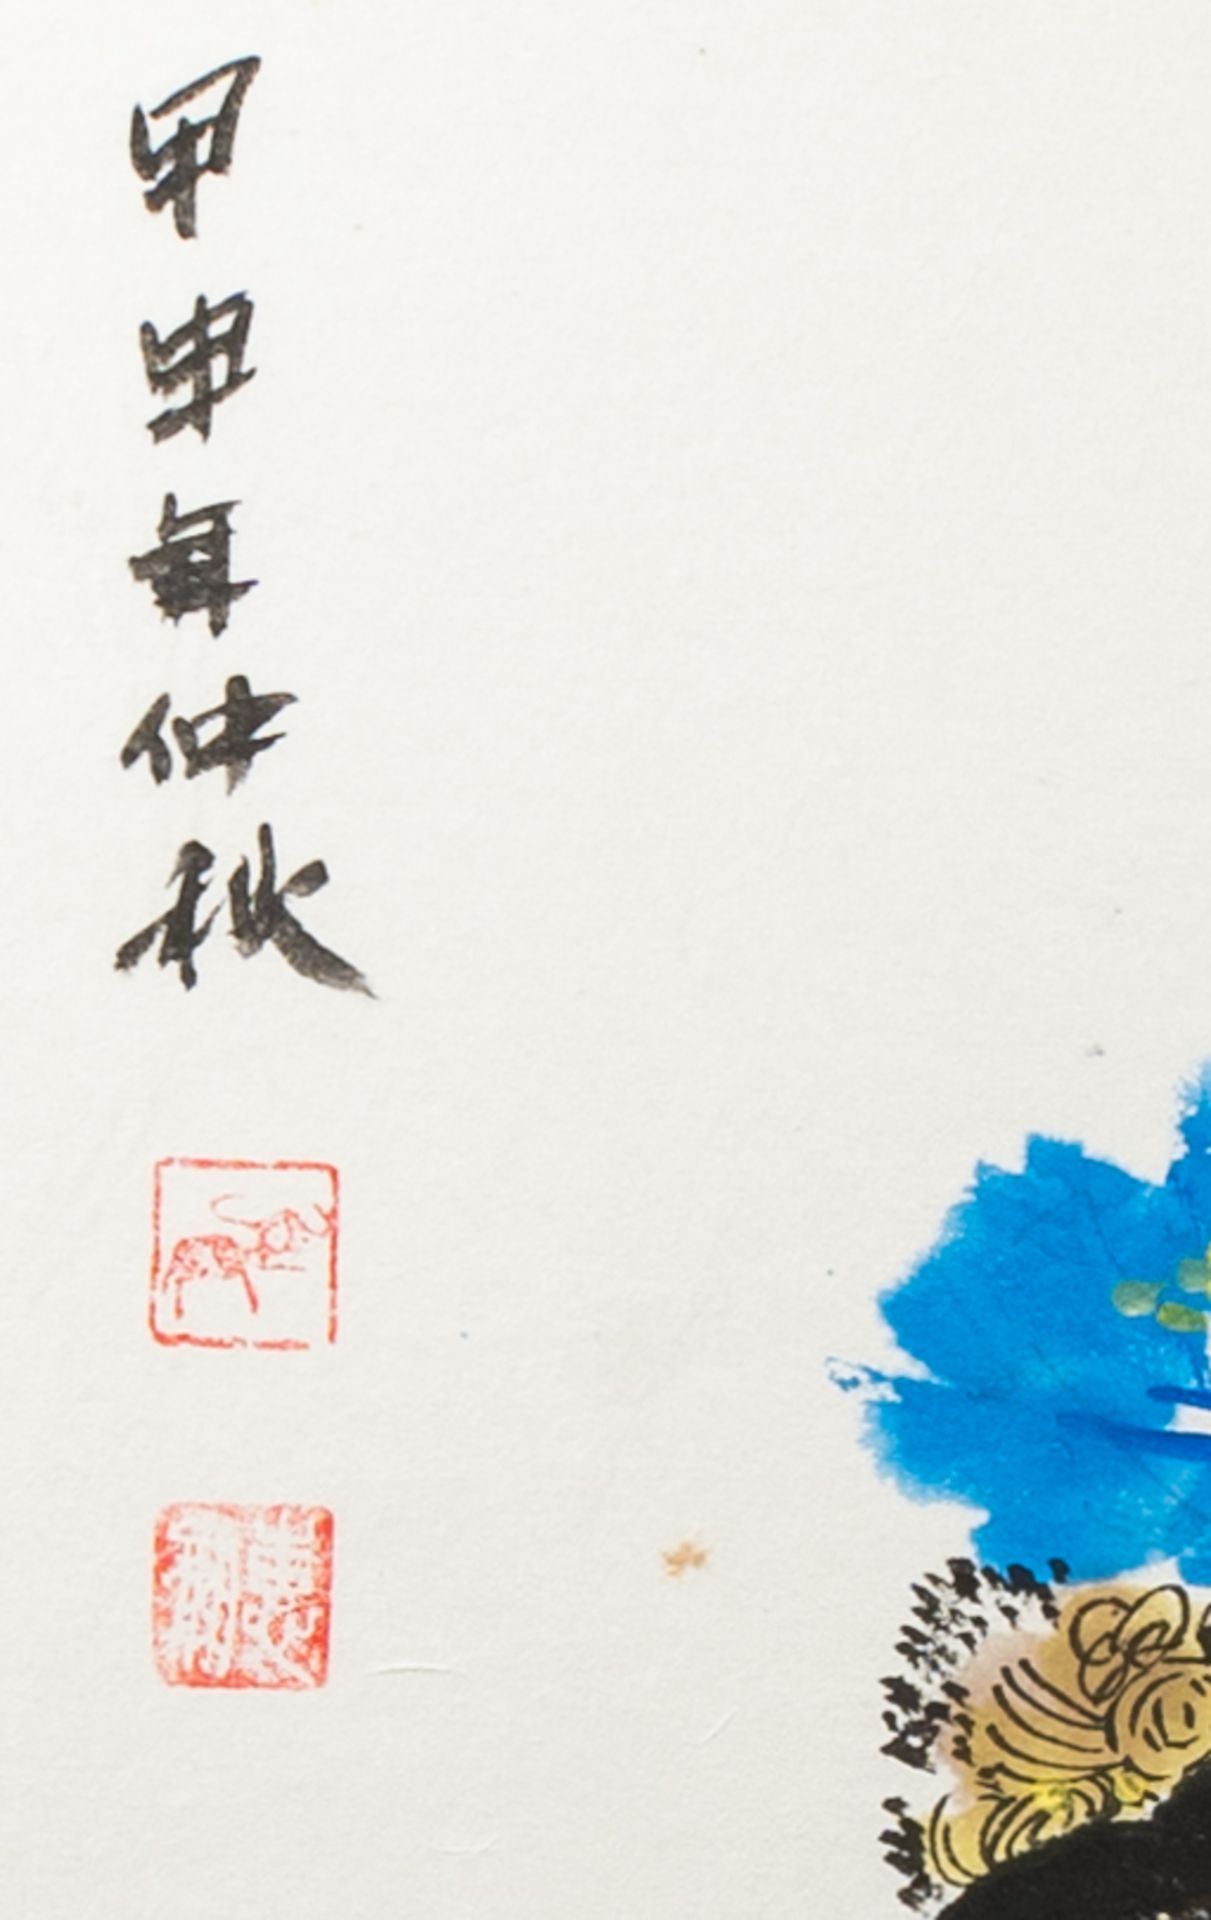 甲申年仲秋